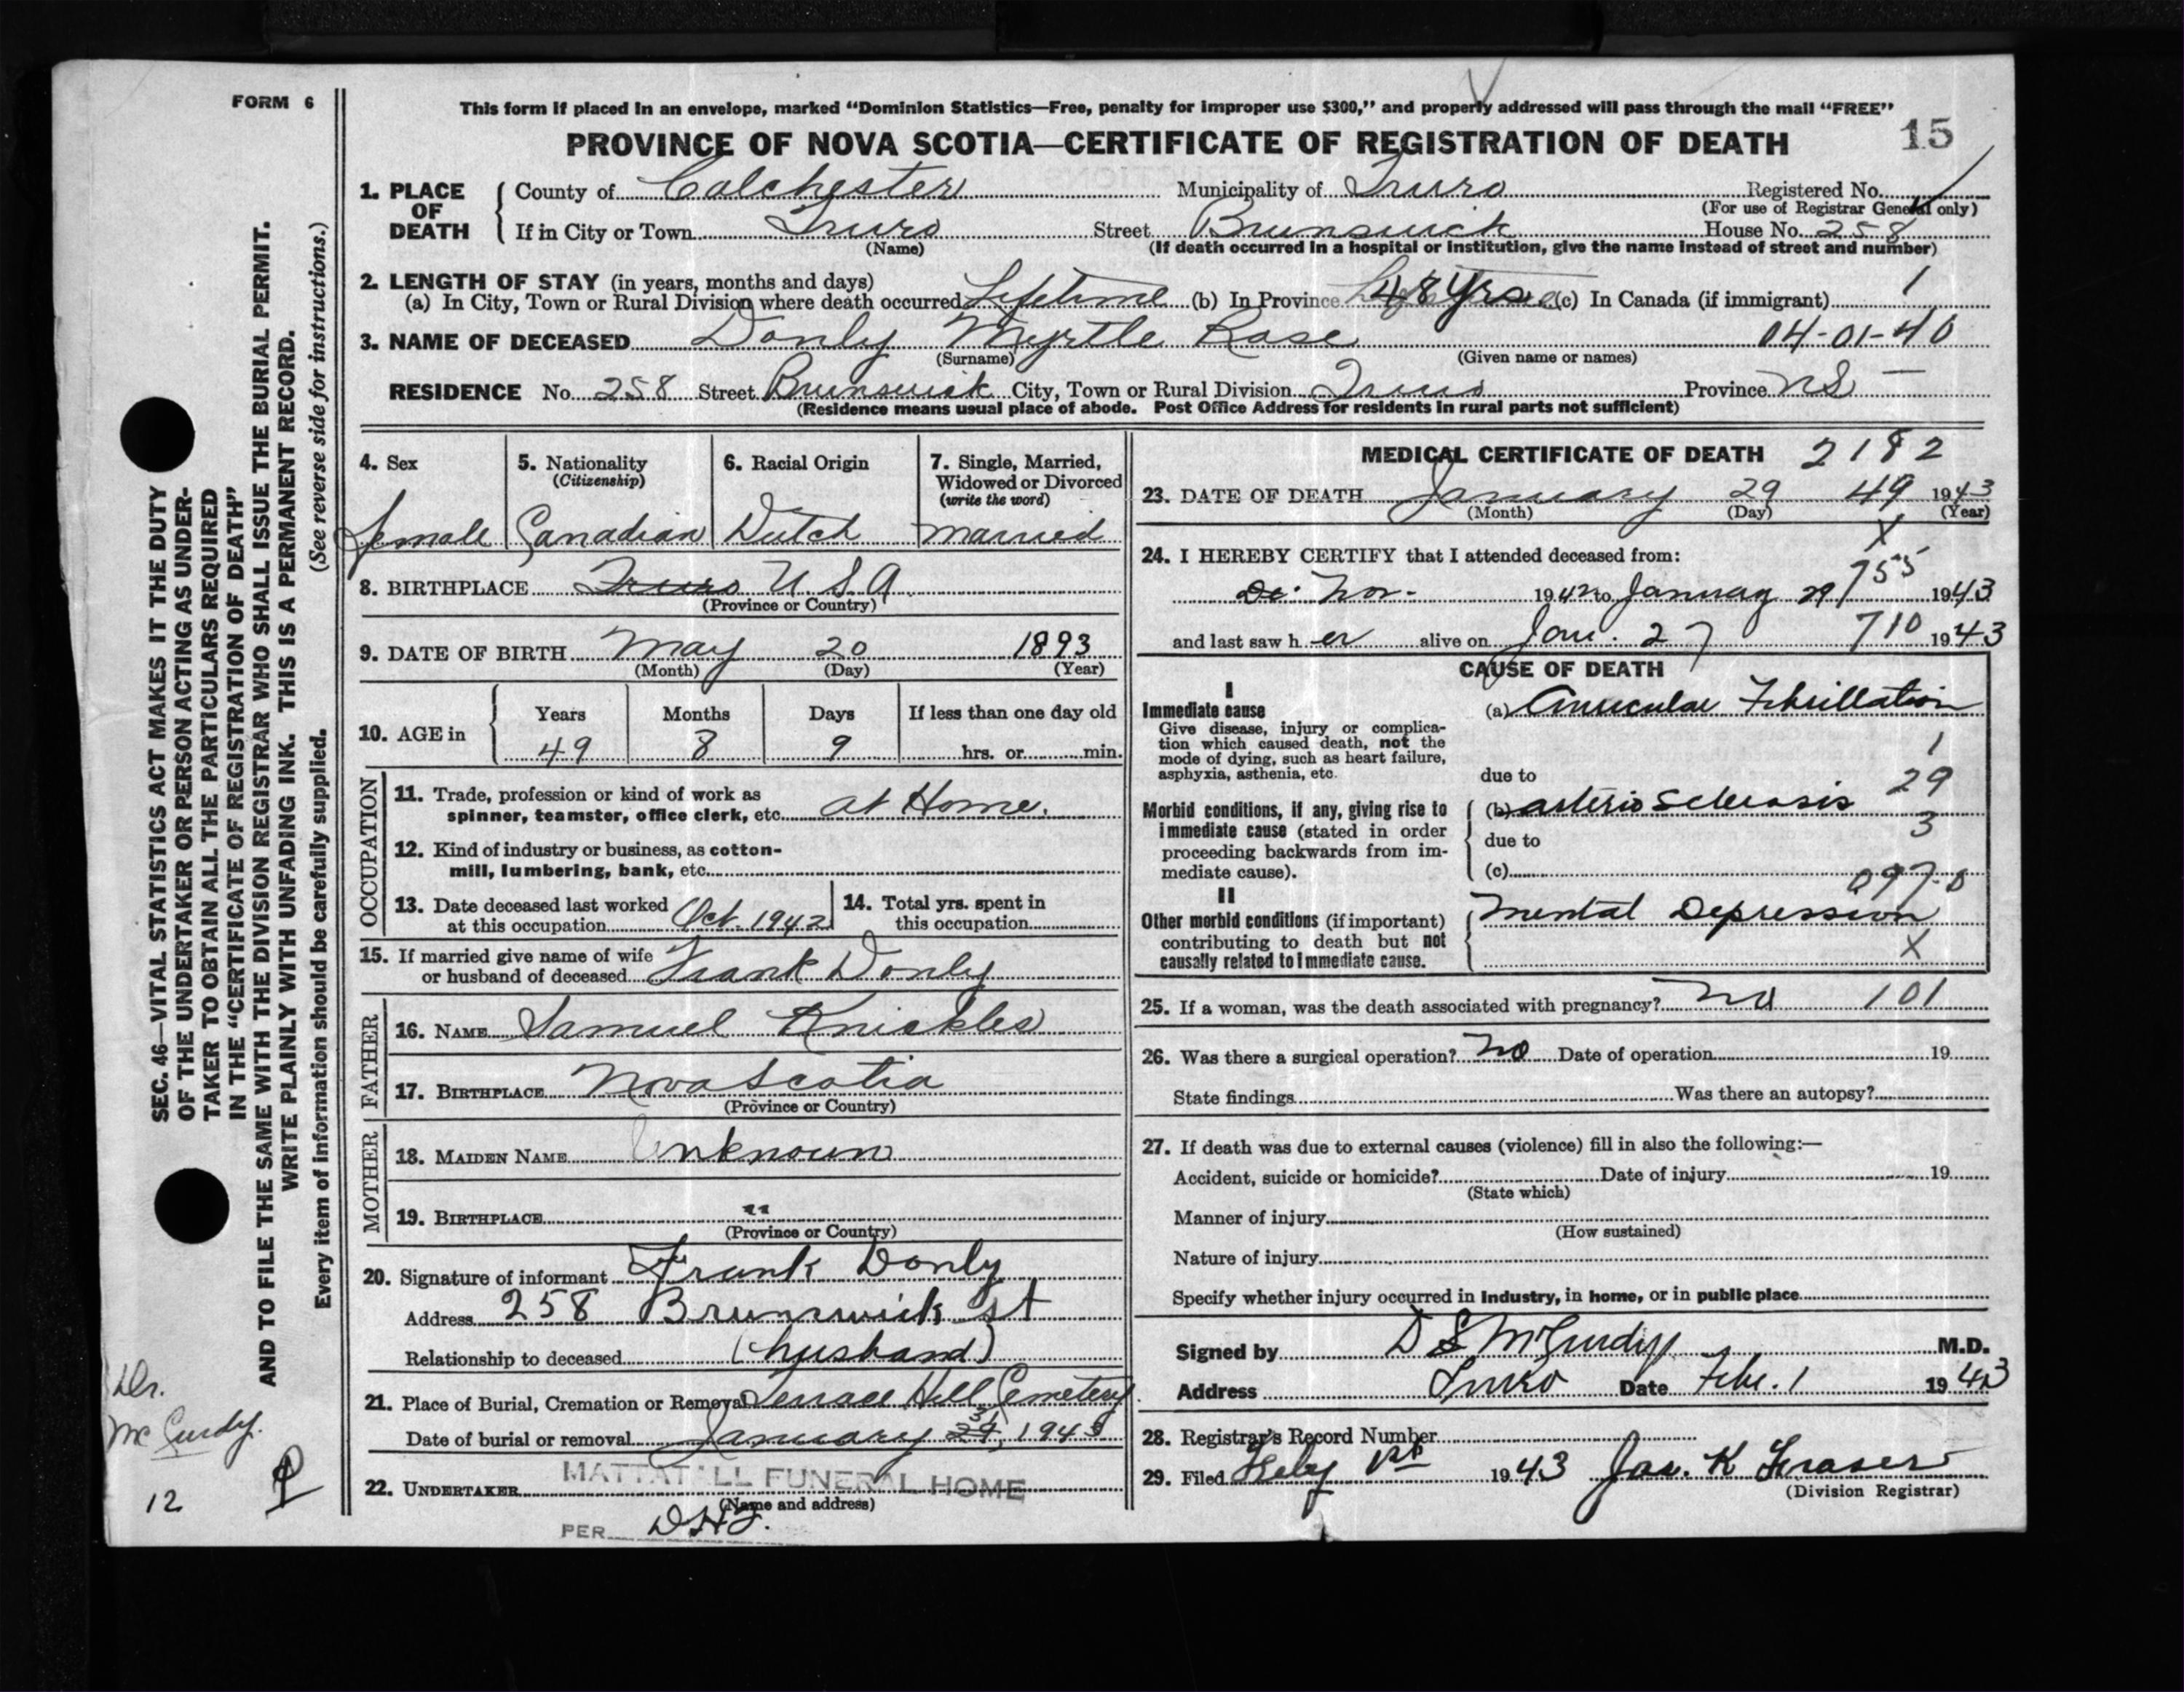 FORM 6
This form if placed in an envelope, marked “Dominion Statistics—Free, penalty for improper use $300,” and properly addressed will pass through the mail “FREE”
PROVINCE OF NOVA SCOTIA—CERTIFICATE OF REGISTRATION OF DEATH 15
1. PLACE OF DEATH { County of Colchester Municipality of Truro Registered No.
(For use of Registrar General only)
If in City or Town Truro Street Brunswick House No. 258
(Name) (If death occurred in a hospital or institution, give the name instead of street and number)
2. LENGTH OF STAY (in years, months and days) 1
(a) In City, Town or Rural Division where death occurred Lifetime (b) In Province 48 Yrs (c) In Canada (if immigrant)
3. NAME OF DECEASED Donly Myrtle Rose 04-01-40
(Surname) (Given name or names)
RESIDENCE No. 258 Street Brunswick City, Town or Rural Division Truro Province NS
(Residence means usual place of abode. Post Office Address for residents in rural parts not sufficient)
4. Sex 5. Nationality (Citizenship) 6. Racial Origin 7. Single, Married, Widowed or Divorced (write the word)
female Canadian Dutch married
8. BIRTHPLACE Truro U.S.A.
(Province or Country)
9. DATE OF BIRTH May 20 1893
(Month) (Day) (Year)
10. AGE in { Years Months Days If less than one day old
49 8 9 hrs. or min.
OCCUPATION
11. Trade, profession or kind of work as
spinner, teamster, office clerk, etc. at Home.
12. Kind of industry or business, as cotton-
mill, lumbering, bank, etc.
13. Date deceased last worked at this occupation Oct. 1942 14. Total yrs. spent in this occupation
15. If married give name of wife
or husband of deceased Frank Donly
FATHER
16. NAME Samuel Knickles
17. BIRTHPLACE Nova Scotia
(Province or Country)
MOTHER
18. MAIDEN NAME Unknown
19. BIRTHPLACE "
(Province or Country)
20. Signature of informant Frank Donly
Address 258 Brunswick st
Relationship to deceased (husband)
21. Place of Burial, Cremation or Removal Terrace Hill Cemetery
Date of burial or removal January 31, 1943
22. UNDERTAKER MATTATALL FUNERAL HOME
(Name and address)
PER
MEDICAL CERTIFICATE OF DEATH 2182
23. DATE OF DEATH January 29 49 1943
(Month) (Day) (Year)
X
24. I HEREBY CERTIFY that I attended deceased from:
Nov. 1942 to January 29 755 1943
and last saw her alive on Jan. 27 710 1943
CAUSE OF DEATH
I
Immediate cause (a) Auricular Fibrillation
Give disease, injury or complica-
tion which caused death, not the 1
mode of dying, such as heart failure,
asphyxia, asthenia, etc. due to 29
Morbid conditions, if any, giving rise to (b) arterio Sclerosis
immediate cause (stated in order 3
proceeding backwards from im- due to
mediate cause). (c) 097-0
II
Other morbid conditions (if important) Mental Depression
contributing to death but not X
causally related to immediate cause.
25. If a woman, was the death associated with pregnancy? no 101
26. Was there a surgical operation? no Date of operation 19
State findings Was there an autopsy?
27. If death was due to external causes (violence) fill in also the following:—
Accident, suicide or homicide? Date of injury 19
(State which)
Manner of injury
(How sustained)
Nature of injury
Specify whether injury occurred in industry, in home, or in public place
Signed by D S McCurdy M.D.
Address Truro Date Feb. 1 1943
28. Registrar's Record Number
29. Filed Feby 1st 1943 Jas. K Fraser
(Division Registrar)
SEC. 46—VITAL STATISTICS ACT MAKES IT THE DUTY
OF THE UNDERTAKER OR PERSON ACTING AS UNDER-
TAKER TO OBTAIN ALL THE PARTICULARS REQUIRED
IN THE “CERTIFICATE OF REGISTRATION OF DEATH”
AND TO FILE THE SAME WITH THE DIVISION REGISTRAR WHO SHALL ISSUE THE BURIAL PERMIT.
WRITE PLAINLY WITH UNFADING INK. THIS IS A PERMANENT RECORD.
Every item of information should be carefully supplied. (See reverse side for instructions.)
Dr.
McCurdy.
12